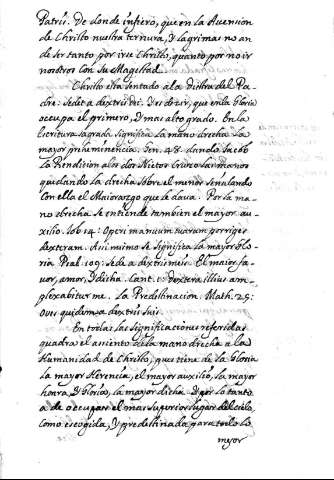 Patris. De donde infiero, que en la Ascension
de Christo nuestra ternura, y lagrimas no an
de ser tanto por irse Christo, quanto por no ir
nosotros con su Magestad.
Christo esta sentado a la diestra del Pa-
dre: Sedet a dextris dei: Es dezir, que en la Gloria
ocupa el primero, y mas alto grado. En la
Escritura sagrada significa la mano drecha la
mayor preheminencia. Gen. 48. danola Jacob
la Bendicion a los dos Nietos Cruzo las manos
quedando la drecha sobre el menor senalando
con ella el Maiorazgo que le dava. Por la ma-
no drecha se entiende tambien el mayor au-
xilio. Job 14: Operi manuum tuarum porriges
dexteram. Asi mismo se significa la mayor glo-
ria Psal. 109: Sede a dextris meis. El maior fa-
vor, amor, y dicha. Cant. 2: dextera illius am-
plexabitur me. La Predestinacion. Math. 25:
Oves quidem a dextris suis.
En todas las significaciones referidas
quadra el asiento a la mano drecha a la
Humanidad de Christo, pues tiene de la Gloria
la mayor Herencia, el mayor auxilio, la mayor
honra, y Gloria, la mayor dicha. Y por lo tanto
a de ocupar el mas superior lugar del cielo,
como escogida, y predestinada para todo lo
mejor